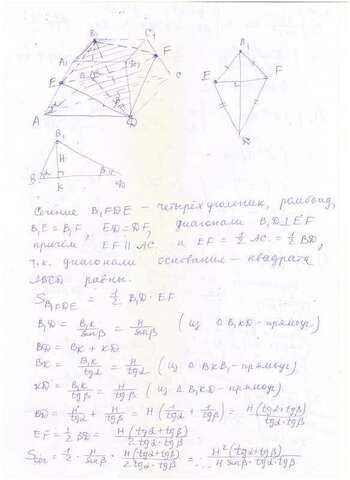 B₁ C₁
A₁ F
E C
A D
B₁
E F
B₁
H
B α β D
K
Сечение B₁FDE – четырёхугольник, ромбоид,
B₁E = B₁F, ED = DF, диагонали B₁D ⊥ EF
причём EF ∥ AC и EF = 1/2 AC = 1/2 BD,
т.к. диагонали основания – квадрата
ABCD равны.
S B₁FDE = 1/2 B₁D · EF
B₁D = B₁K/sinβ = H/sinβ (из △ B₁KD – прямоуг.)
BD = BK + KD
BK = B₁K/tgα = H/tgα (из △ BKB₁ – прямоуг)
KD = B₁K/tgβ = H/tgβ (из △ B₁KD – прямоуг.)
BD = H/tgα + H/tgβ = H(1/tgα + 1/tgβ) = H(tgα+tgβ)/tgα·tgβ
EF = 1/2 BD = H(tgα+tgβ)/2tgα·tgβ
Sсеч = 1/2 · H/sinβ · H(tgα+tgβ)/2tgα·tgβ = H²(tgα+tgβ)/4 sinβ·tgα·tgβ